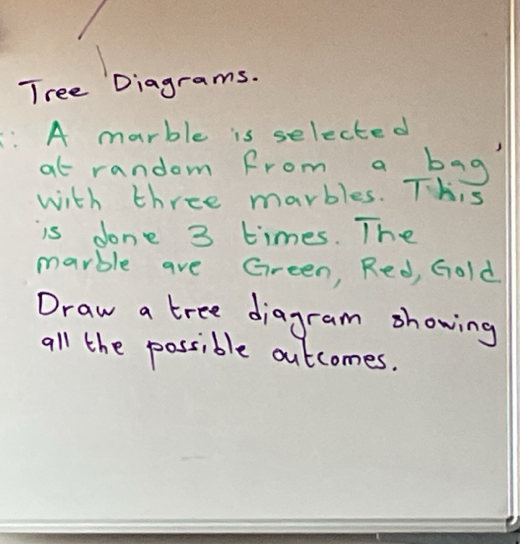 Tree Diagrams.
: A marble is selected
at random from a bag
with three marbles. This
is done 3 times. The
marble are Green, Red, Gold
Draw a tree diagram showing
all the possible outcomes.